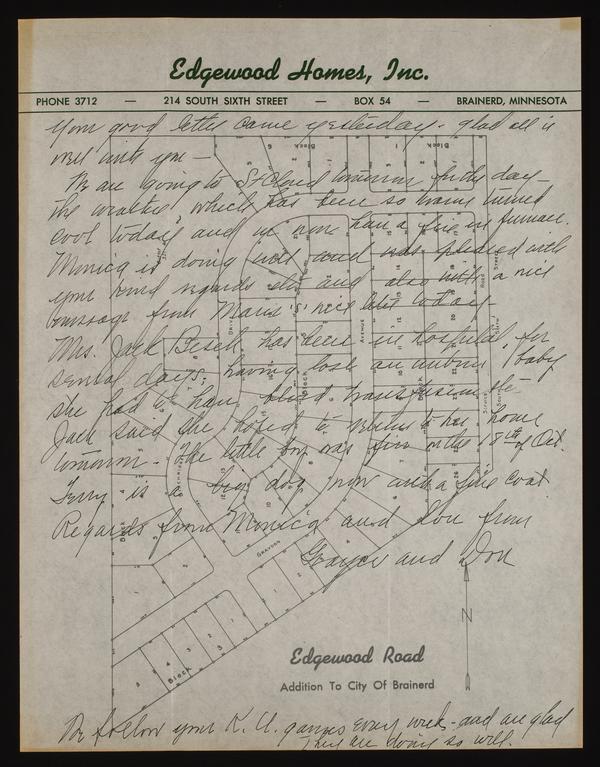 Edgewood Homes, Inc.
PHONE 3712 — 214 SOUTH SIXTH STREET — BOX 54 — BRAINERD, MINNESOTA
Your good letter came yesterday - glad all is
well with you -
We are going to St Cloud tomorrow for the day -
the weather which has been so warm turned
cool today and we now have a fire in furnace.
Monica is doing well and was pleased with
your kind regards etc and also with a nice
message from Marie's nice letter today -
Mrs. Jack Besch has been in hospital for
several days; having lost an unborn baby
she had to have blood transfusions etc
Jack said she hoped to return to her home
tomorrow - The little boy was five on the 18th of Oct.
Terry is a big dog now with a fine coat
Regards from Monica and love from
Grayce and Don
N
Edgewood Road
Addition To City Of Brainerd
We follow your K. U. games every week - and are glad
they are doing so well.